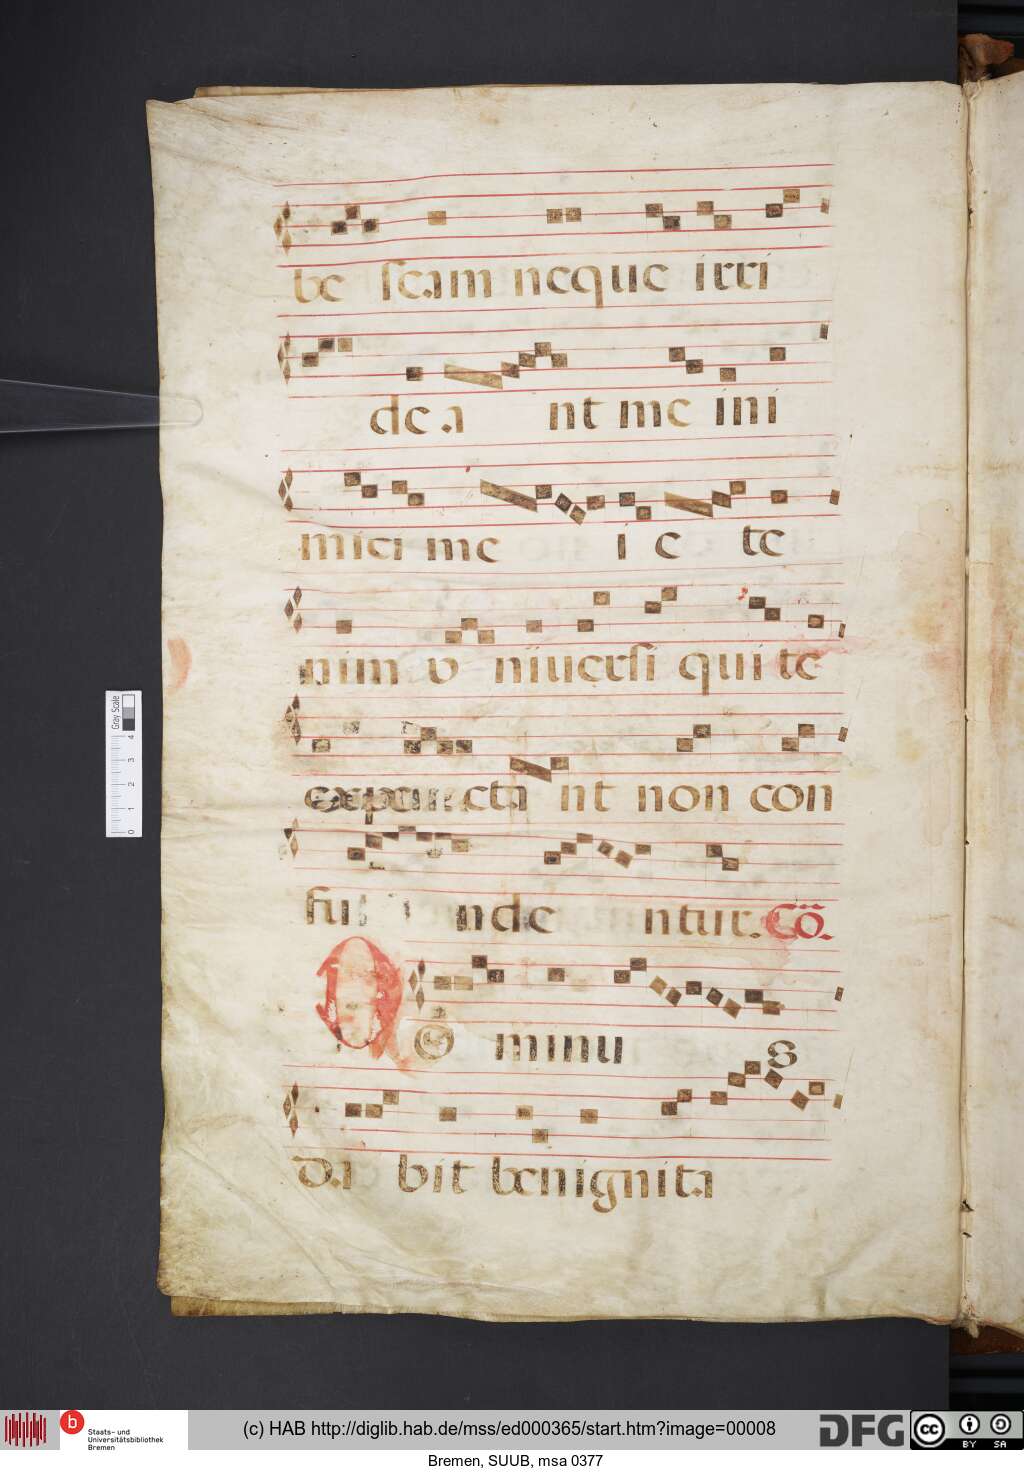 be scam neque irri
de a nt me ini
mici me i e te
nim v niuersi qui te
expe cta nt non con
fu nde ntur. Cō.
Dominus
da bit benignita
Gray Scale
4
3
2
1
0
b Staats- und
Universitätsbibliothek
Bremen
(c) HAB http://diglib.hab.de/mss/ed000365/start.htm?image=00008
DFG
cc BY SA
Bremen, SUUB, msa 0377